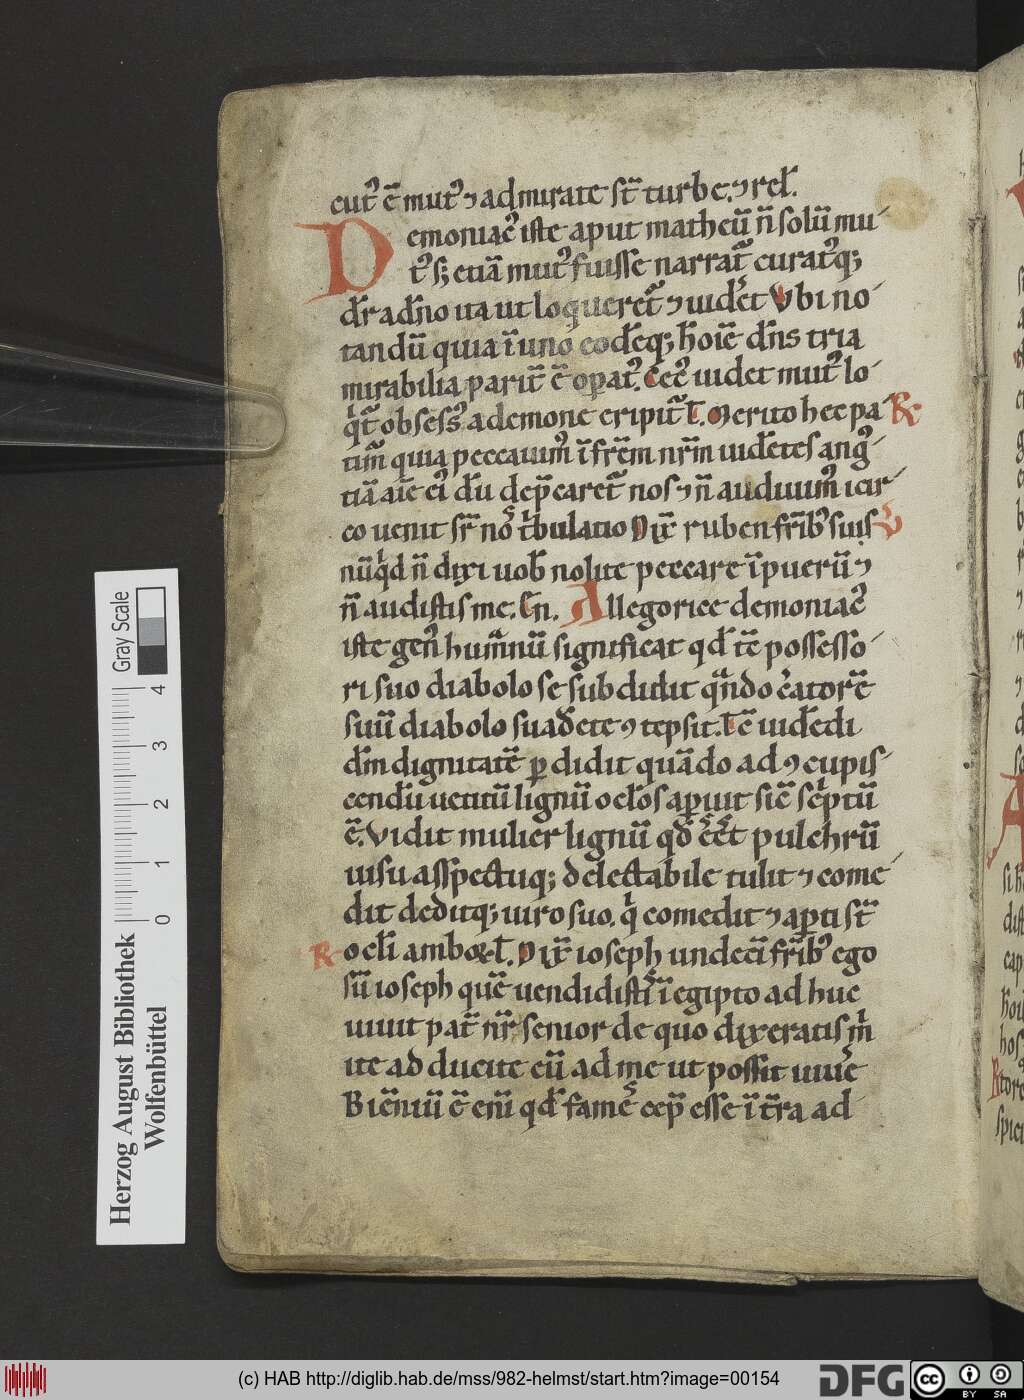 cut᷒ ē mut᷒ ⁊ admirate st̄ turbe. ⁊ rel̄.
Demoniac᷒ iste aput matheū n̄ solū mu
t᷒ sꝫ etiā mut᷒ fuisse narrat᷑ curat᷒qꝫ
d̄r ad̄no ita ut loqueret᷑ ⁊ uid̄et Vbi no
tandū quia ī uno eodēqꝫ hōie dn̄s tria
mirabilia parit̄ ē opat᷒. Cec᷒ uidet mut᷒ lo
qͥt᷑ obsess᷒ a demone eripit᷑ Merito hec pa R
tim᷑ quia peccauim᷒ ī fr̄em nr̄m uid̄etes ang᷒
tiā aīe ei᷒ dū dep̄caret᷑ nos ⁊ n̄ audiuim᷒ icir
co uenit sr̄ nō tͥbulatio Dix̄ ruben frīb᷒ suis V
nūqͥd n̄ dixi uob̄ nolite peccare ī puerū ⁊
n̄ audistis me. Allegorice demoniac᷒
iste gen᷒ humanū significat qd̄ tē possesso
ri suo diabolo se subdidit qͣndo c̓atorē
suū diabolo suadēte ⁊tepsit. uid̄edi
d̄m dignitatē ꝑdidit quādo ad ⁊cupis
cendū uetitū lignū ocl̄os apuit sic̄ sc̓ptū
ē. Vidit mulier lignū qd̄ eēt pulchrū
uisu asspectuqꝫ delectabile tulit ⁊ come
dit deditqꝫ uiro suo. qͥ comedit ⁊ apti st̄
R ocl̄i amboꝝ. Dix̄ ioseph undecī frīb᷒ ego
sū ioseph quē uendidistī ī egipto adhuc
uiuit pat̄ nr̄ senior de quo dixeratis mͥ
ite adducite eū ad me ut possit uiue
Bienīū ē enī qd̄ fames cep̄ esse ī t̄ra ad
Herzog August Bibliothek
Wolfenbüttel
Gray Scale
0 1 2 3 4
(c) HAB http://diglib.hab.de/mss/982-helmst/start.htm?image=00154
DFG
cc BY SA